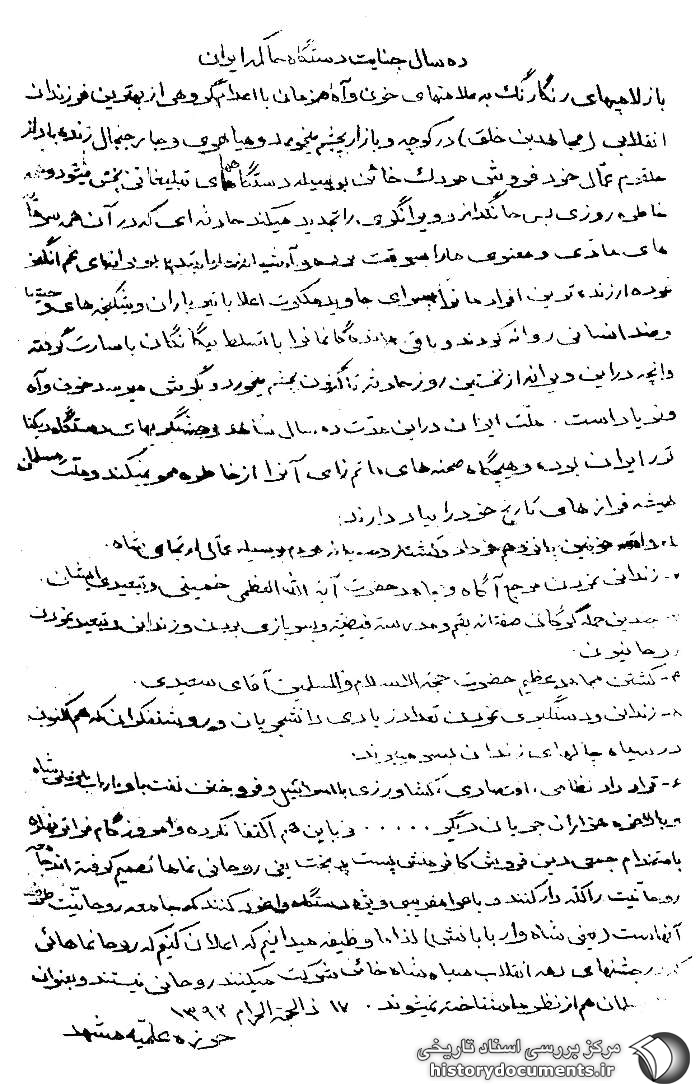 ده سال جنایت دستگاه حاکمه ایران
باز لامپهای رنگارنگ به علامتهای خون و آه همزمان با اعدام گروهی از بهترین فرزندان
انقلابی (مجاهدین خلق) در کوچه و بازار بچشم میخورد و هیاهوی و جار جنجال زنده باد از
حلقوم عمّال خود فروش مردک خائن بوسیله دستگاههای تبلیغاتی پخش میشود و همه
خاطره روزی بس جانگداز و دیوانگوی را تجدید میکند حادثه ای که در آن همه سرمایه
های مادّی و معنوی ما را بسرقت بردند و
نموده ارزنده ترین افراد ما را بسوی جاوید ملکوت اعلا با تیرباران و شکنجه های وحشیانه
و ضد انسانی روانه کردند و باقی مانده گانمان را با تسلط بیگانگان باسارت گرفته
وانچه در این ویرانه از نخستین روز حادثه تا کنون بچشم میخورد و بگوش میرسد خون و آه
و فریاد است . ملّت ایران در این مدّت ده سال شاهد وحشیگریهای دستگاه دیکتا
تور ایران بوده و هیچگاه صحنه های ماتم زای آنرا از خاطره محو نمیکند و ملّت مسلمان
همیشه فرازهای تاریخ خود را بیاد دارند:
۱- واقعه خونین پانزدهم خرداد و کشتار دسته بند مردم بوسیله عمّال ارتجاعی شاه.
۲- زندانی نمودن مرجع آگاه و مجاهد حضرت آیة الله العظمی خمینی و تبعیدی ایشان.
چندین حمله گرگانی صفتانه بقم و مدرسه فیضیّه و بسربازی بردن و زندانی و تبعید نمودن
روحانیون.
۴- کشتن مجاهد عظیم حضرت حجة الاسلام والمسلمین آقای سعیدی.
زندانی و دستگیری نمودن تعداد زیادی دانشجویان و روشنفکران که هم اکنون
در سیاه چالهای زندان بسر میبرند.
۶- قرار داد نظامی، اقتصادی، کشاورزی با اسرائیل و فروختن نفت باو
و بالاخره هزاران جریان دیگر ..... و باین هم اکتفا نکرده و امروز گام فراتر نهاده
باستخدام جمعی دین فروش کافر منش پست بدبخت یعنی روحانی نماها تصمیم گرفته اند جامعه
روحانیّت را لکّه دار کنند و با عوامفریبی ویژه دستگاه وانمود کنند که جامعه روحانیّت طرفدار
آنهاست (یعنی شاه و اربابانش) لذا ما وظیفه میدانیم که اعلان کنیم که روحانماهائی
که در جشنهای دهه انقلاب سیاه شاه خائن شرکت میکنند روحانی نیستند و بعنوان
مسلمان هم از نظر ما شناخته نمیشوند. ۱۷ ذالحجة الحرام ۱۳۹۲
حوزه علمیّه مشهد
مرکز بررسی اسناد تاریخی
historydocuments.ir